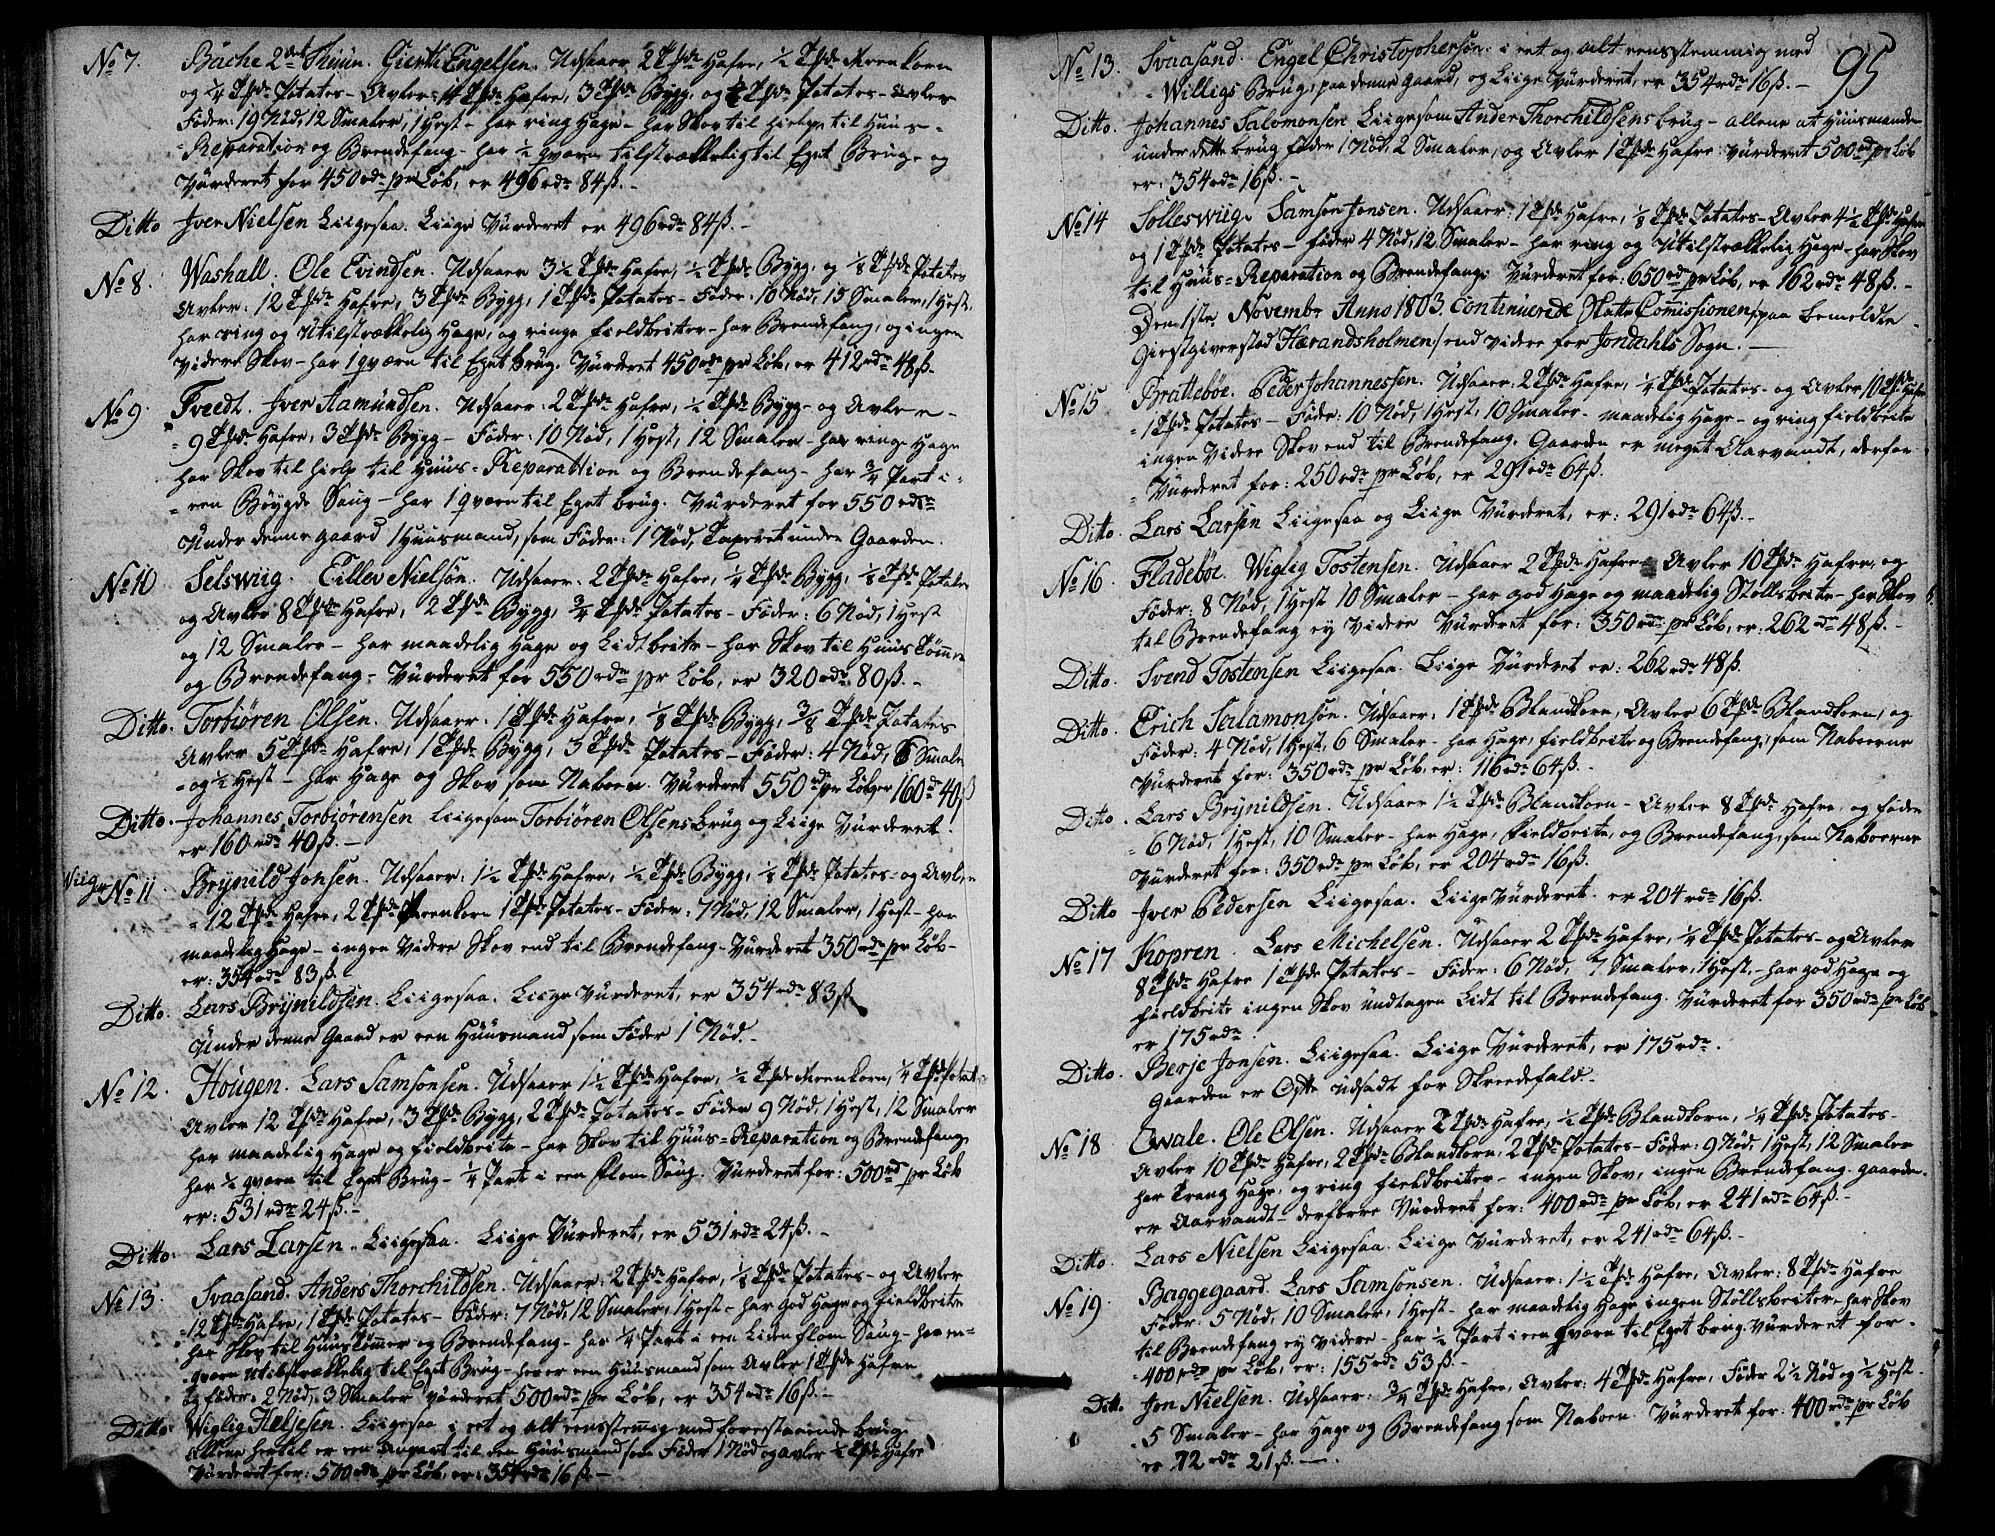 No 7. Bache 2det Thuun. Gierti Engelsen. Udsaaer 2 Tpde Hafre, 1/2 Tpde Areenkorn
og 1/4 Tpde Potates - Avler: Tpde Hafre, 3 Tpde Bygg, og Tpde Potates - Avler
Føder: 19 Nød, 12 Smaler, 1 Hest - har ring Hage - har Skov til hielp til Huus-
Reparation og Brendefang - har 1/2 qværn tilstrækkelig til Eget Brug og
Vürderet for 450 rdr pr Løb, er 496 rdr 84 ß. -
Ditto Jver Nielsen Liigesaa. Liige Vürderet er 496 rdr 84 ß. -
No 8. Washall. Ole Evindsen. Udsaaer 3 1/2 Tpde Hafre, 1/2 Tpde Bygg, og 1/8 Tpde Potates
Avler: 12 Tpde Hafre, 3 Tpde Bygg, 1 Tpde Potates - Føder: 10 Nød, 15 Smaler, 1 Hest,
har ring og Utilstrækkelig Hage, og ringe Fieldbeiter - har Brendefang, og ingen
Videre Skov - har 1 qværn til Eget brug. Vürderet 450 rdr pr Løb, er 412 rdr 48 ß.
No 9. Tvedt. Jver Aamündsen. Udsaaer: 2 Tpde Hafre, 1/2 Tpde Bygg - og Avler -
9 Tpde Hafre, 3 Tpde Bygg - Føder: 10 Nød, 1 Hest, 12 Smaler - har ringe Hage
har Skov til hielp til Huus-Reparation og Brendefang - har 3/4 Part i
een Bøygde Saug - har 1 qværn til Eget brug. Vürderet for 550 rdr
Under denne gaard 1 Huusmand, som Føder: 1 Nød, Taxeret under Gaarden.
No 10 Selswiig. Tillev Nielsøn. Udsaaer: 2 Tpde Hafre, 1/4 Tpde Bygg, 1/8 Tpde Potates
og Avler 8 Tpde Hafre, 2 Tpde Bygg, 3/4 Tpde Potates - Føder: 6 Nød, 1 Hest
og 12 Smaler - har maadelig Hage og Lidt beite - har Skov til Huus Tømmer
og Brendefang - Vürderet for 550 rdr pr Løb, er 320 rdr 80 ß. -
Ditto. Torbiøren Olsen. Udsaaer: 1 Tpde Hafre, 1/8 Tpde Bygg, 3/8 Tpde Potates
Avler 5 Tpde Hafre, 1 Tpde Bygg, 3 Tpde Potates - Føder: 4 Nød, 6 Smaler
- og 1/2 Hest - har Hage og Skov som Naboen. Vürderet 550 rdr pr Løb, er 160 rdr 40 ß
Ditto. Johannes Torbiørensen Liigesom Torbiøren Olsens brug og Liige Vürderet.
er 160 rdr 40 ß. -
Viige No 11. Brynild Jonsen. Udsaaer: 1 1/2 Tpde Hafre, 1/2 Tpde Bygg, 1/8 Tpde Potates - og Avler
12 Tpde Hafre, 2 Tpde Areenkorn 1 Tpde Potates - Føder: 7 Nød, 12 Smaler, 1 Hest - har
maadelig Hage - ingen Videre Skov end til Brendefang - Vürderet 350 rdr pr Løb -
er: 354 rdr 83 ß.
Ditto. Lars Brynildsen. Liigesaa. Liige Vürderet, er 354 rdr 83 ß.
Under denne Gaard er een Huusmand som Føder 1 Nød. -
No 12. Hougen. Lars Samsonsen. Udsaaer 1 1/2 Tpde Hafre, 1/2 Tpde Areenkorn, 1/4 Tpde Potates
Avler 12 Tpde Hafre, 3 Tpde Bygg, 2 Tpde Potates - Føder 9 Nød, 1 Hest, 12 Smaler
har maadelig Hage og Fieldbeite - har Skov til Huus-Reparation og Brendefang,
har 1/2 qværn til Eget Brug - 1/4 Part i een Flom Saug. Vürderet for: 500 rdr pr Løb
er: 531 rdr 24 ß. -
Ditto. Lars Larsen. Liigesaa. Liige Vürderet, er 531 rdr 24 ß. -
No 13. Svaasand. Anders Thorchildsen. Udsaaer: 2 Tpde Hafre, 1/8 Tpde Potates - og Avler
12 Tpde Hafre, 1 Tpde Potates - Føder: 7 Nød, 12 Smaler, 1 Hest - har god Hage og Fieldbeite
har Skov til Huus Tømmer og Brendefang - har 1/4 Part i een Liden Flom Saug - har en
qværn utilstrækkelig til Eget Brug - herer een Huusmand som Avler 1 Tpde Hafre
og føder: 2 Nød, 3 Smaler Vürderet 500 rdr pr Løb, er 354 rdr 16 ß. -
Ditto Wiglig Helgesen. Liigesaa i eet og alt eensstemmig med forestaaende brug
Allene hertil er een Anpart til den Huusmand som Føder 1 Nød og avler 1/2 Tpde Hafre
Vürderet for: 500 rdr pr Løb, er: 354 rdr 16 ß. -
95
No 13. Svaasand. Engel Christophersøn. i eet og alt eensstemmig med
Willigs Brug, paa denne Gaard, og Liige Vürderet, er 354 rdr 16 ß. -
Ditto. Johannes Salomonsen Liigesom Ander Thorchildsens brug - allene at Huusmanden
under dette brug føder 1 Nød, 2 Smaler, og Avler 1 Tpde Hafre Vürderet 500 rdr pr Løb
er: 354 rdr 16 ß. -
No 14 Solleswiig. Samson Jonsen. Udsaaer: 1 Tpde Hafre, 1/8 Tpde Potates - Avler 4 1/2 Tpde Hafre
og 1 Tpde Potates - føder 4 Nød, 12 Smaler - har ring og Utilstrækkelig Hage - har Skov
til Huus-Reparation og Brendefang: Vürderet for: 650 rdr pr Løb, er 162 rdr 48 ß. -
Den 1ste November Anno 1803. Continuerede Skatte Comissionen, paa bemeldte
Giestgiversted Herandsholmen, end videre for Jondahls Sogn. -
No 15 Brattebøe. Peder Johannessen. Udsaaer: 2 Tpde Hafre, 1/4 Tpde Potates - og Avler 10 Tpde Hafre
1 Tpde Potates - Føder: 10 Nød, 1 Hest, 10 Smaler - maadelig Hage - og ring fieldbeite
ingen Videre Skov end til Brendefang. Gaarden er meget Aarvandt, derfor
Vürderet for: 250 rdr pr Løb, er 291 rdr 64 ß.
Ditto. Lars Larsen Liigesaa og Liige Vürderet, er: 291 rdr 64 ß. -
No 16. Fladebøe. Wiglig Tostensen. Udsaaer 2 Tpde Hafre - Avler 10 Tpde Hafre, og
Føder: 8 Nød, 1 Hest 10 Smaler - har god Hage og maadelig Støllsbeite - har Skov
til Brendefang ey Videre Vürderet for: 350 rdr pr Løb, er: 262 rdr 48 ß. -
Ditto. Svend Tostensen Liigesaa. Liige Vürderet er: 262 rdr 48 ß.
Ditto. Erich Salamonsøn. Udsaaer: 1 Tpde Blandkorn, Avler 6 Tpde Blandkorn, og
Føder: 4 Nød, 1 Hest, 6 Smaler - har Hage, fieldbeite og Brendefang, som Naboerne
Vürderet for: 350 rdr pr Løb, er: 116 rdr 64 ß. -
Ditto. Lars Brynildsen. Udsaaer 1 1/2 Tpde Blandkorn - Avler 8 Tpde Hafre, og føder
6 Nød, 1 Hest, 10 Smaler - har Hage, Fieldbeite, og Brendefang, som Naboerne
Vürderet for: 350 rdr pr Løb, er 204 rdr 16 ß.
Ditto Jver Pedersen Liigesaa. Liige Vürderet. er 204 rdr 16 ß.
No 17 Kopren. Lars Michelsen. Udsaaer 2 Tpde Hafre, 1/4 Tpde Potates - og Avler
8 Tpde Hafre 1 Tpde Potates - Føder: 6 Nød, 7 Smaler, 1 Hest, - har god Hage og
fieldbeite ingen Skov undtagen Lidt til Brendefang. Vürderet for 350 rdr pr Løb
er 175 rdr.
Ditto. Berje Jonsen. Liigesaa. Liige Vürderet, er 175 rdr.
Gaarden er Ofte udsadt for Skreedefald. -
No 18 Qwale. Ole Olsen. Udsaaer 2 Tpde Hafre, 1/2 Tpde Blandkorn, 1/4 Tpde Potates -
Avler 10 Tpde Hafre, 2 Tpde Blandkorn, 2 Tpde Potates - Føder: 9 Nød, 1 Hest, 12 Smaler
har Trang Hage, og ring fieldbeiter - ingen Skov, ingen Brendefang. gaarden
er Aarvandt - derforre Vürderet for: 400 rdr pr Løb, er 241 rdr 64 ß. -
Ditto. Lars Nielsen Liigesaa. Liige Vürderet, er 241 rdr 64 ß. -
No 19 Baggegaard. Lars Samsonsen. Udsaaer: 1 1/2 Tpde Hafre, Avler: 8 Tpde Hafre
Føder: 5 Nød, 10 Smaler, 1 Hest - har maadelig Hage ingen Støllsbeiter - har Skov
til Brendefang ey videre - har 1/2 Part i een qværn til Eget brug. Vürderet for.
400 rdr pr Løb, er: 155 rdr 53 ß. -
Ditto Jon Nielsen. Udsaaer: 3/4 Tpde Hafre, Avler: 4 Tpde Hafre, Føder 2 1/2 Nød og 1/2 Hest
5 Smaler - har Hage og Brendefang som Naboen. Vürderet for: 400 rdr pr Løb
er 72 rdr 21 ß. -